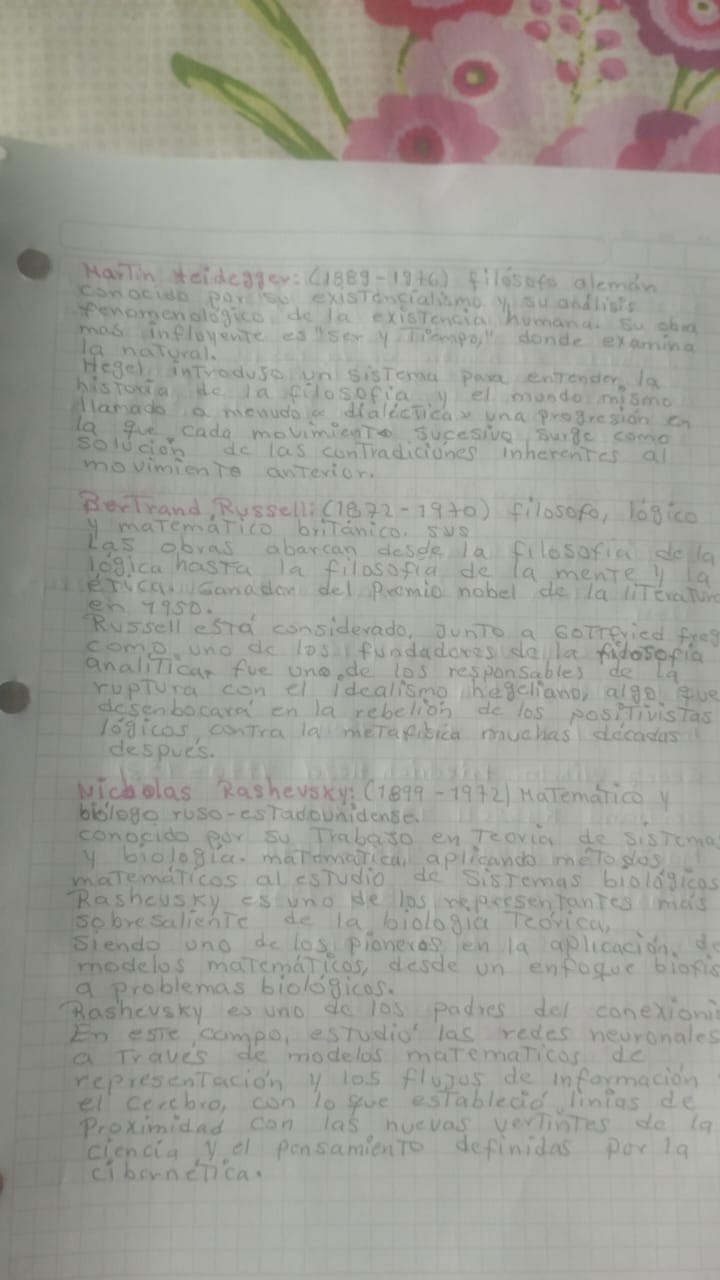 Martin Heidegger: (1889-1976) filósofo alemán
conocido por su existencialismo y su análisis
fenomenológico de la existencia humana. su obra
mas influyente es "ser y Tiempo," donde examina
la natural.
Hegel, introduso un sistema para entender la
historia de la filosofía y el mundo mismo
llamado a menudo « dialéctica» una progresión en
la que cada movimiento sucesivo surge como
solución de las contradiciones inherentes al
movimiento anterior.
Bertrand Russell: (1872-1970) filosofo, lógico
y matemático británico. sus
Las obras abarcan desde la filosofía de la
lógica hasta la filosofía de la mente y la
ética. Ganador del Premio nobel de la literatura
en 1950.
Russell está considerado, Junto a Gottfried freg
como uno de los fundadores de la filosofía
analítica, fue uno de los responsables de la
ruptura con el idealismo hegeliano, algo que
desenbocará en la rebelión de los positivistas
lógicos, contra la metafísica muchas décadas
después.
Nicholas Rashevsky: (1899-1972) Matemático y
biólogo ruso-estadounidense
conocido por su Trabajo en Teoría de sistema
y biología. matemática, aplicando métodos
matemáticos al estudio de sistemas biológicos
Rashevsky es uno de los representantes más
sobresaliente de la biología Teórica,
siendo uno de los pioneros en la aplicación de
modelos matemáticos, desde un enfoque biofís
a problemas biológicos.
Rashevsky es uno de los padres del conexioni
En este campo, estudió las redes neuronales
a Traves de modelos matematicos de
representación y los flujos de información
el cerebro, con lo que estableció linias de
Proximidad con las nuevas vertintes de la
ciencia y el pensamiento definidas por la
cibernética.